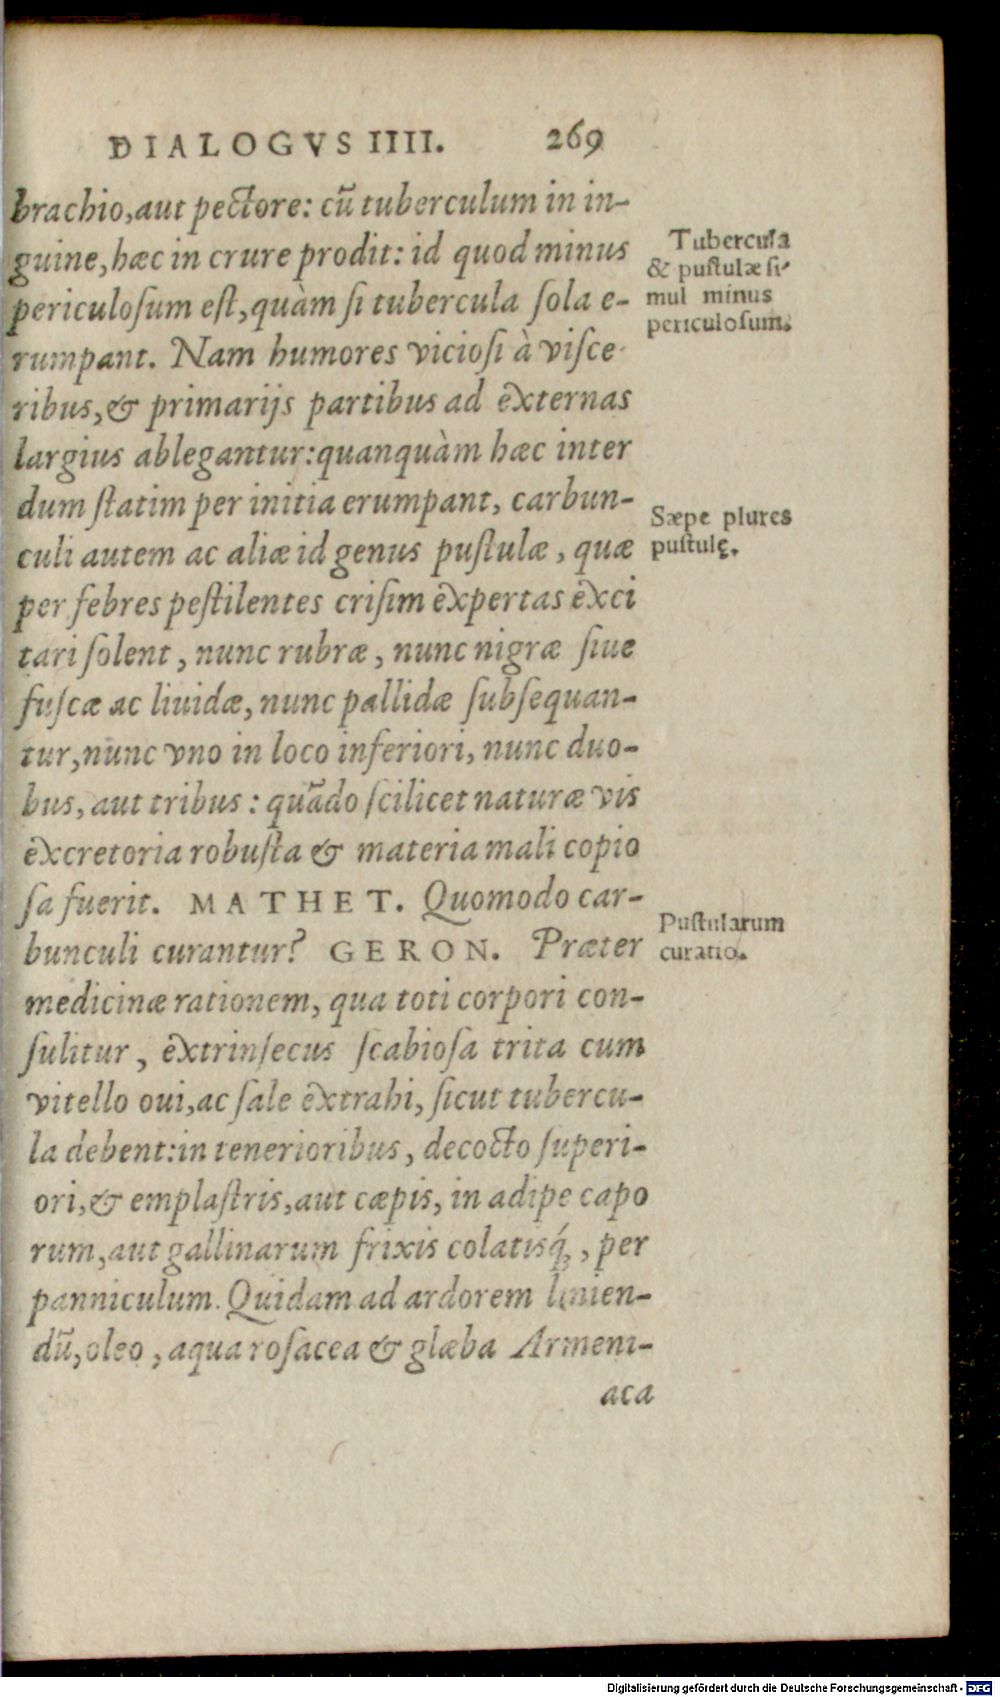 DIALOGVS IIII. 269
brachio,aut pectore: cũ tuberculum in in-
guine,hæc in crure prodit: id quod minus
periculoſum eſt,quàm ſi tubercula ſola e-
rumpant. Nam humores vicioſi à viſce-
ribus,& primarijs partibus ad externas
largius ablegantur:quanquàm hæc inter
dum ſtatim per initia erumpant, carbun-
culi autem ac aliæ id genus puſtulæ, quæ
per febres peſtilentes criſim expertas exci
tari ſolent, nunc rubræ, nunc nigræ ſiue
fuſcæ ac liuidæ, nunc pallidæ ſubſequan-
tur,nunc vno in loco inferiori, nunc duo-
bus, aut tribus: quãdo ſcilicet naturæ vis
excretoria robuſta & materia mali copio
ſa fuerit. MATHET. Quomodo car-
bunculi curantur? GERON. Præter
medicinæ rationem, qua toti corpori con-
ſulitur, extrinſecus ſcabioſa trita cum
vitello oui,ac ſale extrahi, ſicut tubercu-
la debent:in tenerioribus, decocto ſuperi-
ori,& emplaſtris,aut cæpis, in adipe capo
rum,aut gallinarum frixis colatisq́;, per
panniculum. Quidam ad ardorem linien-
dũ,oleo, aqua roſacea & glæba Armeni-
aca
Tubercula
& puſtulæ ſi-
mul minus
periculoſum.
Sæpe plures
puſtulę.
Puſtularum
curatio.
Digitalisierung gefördert durch die Deutsche Forschungsgemeinschaft - DFG